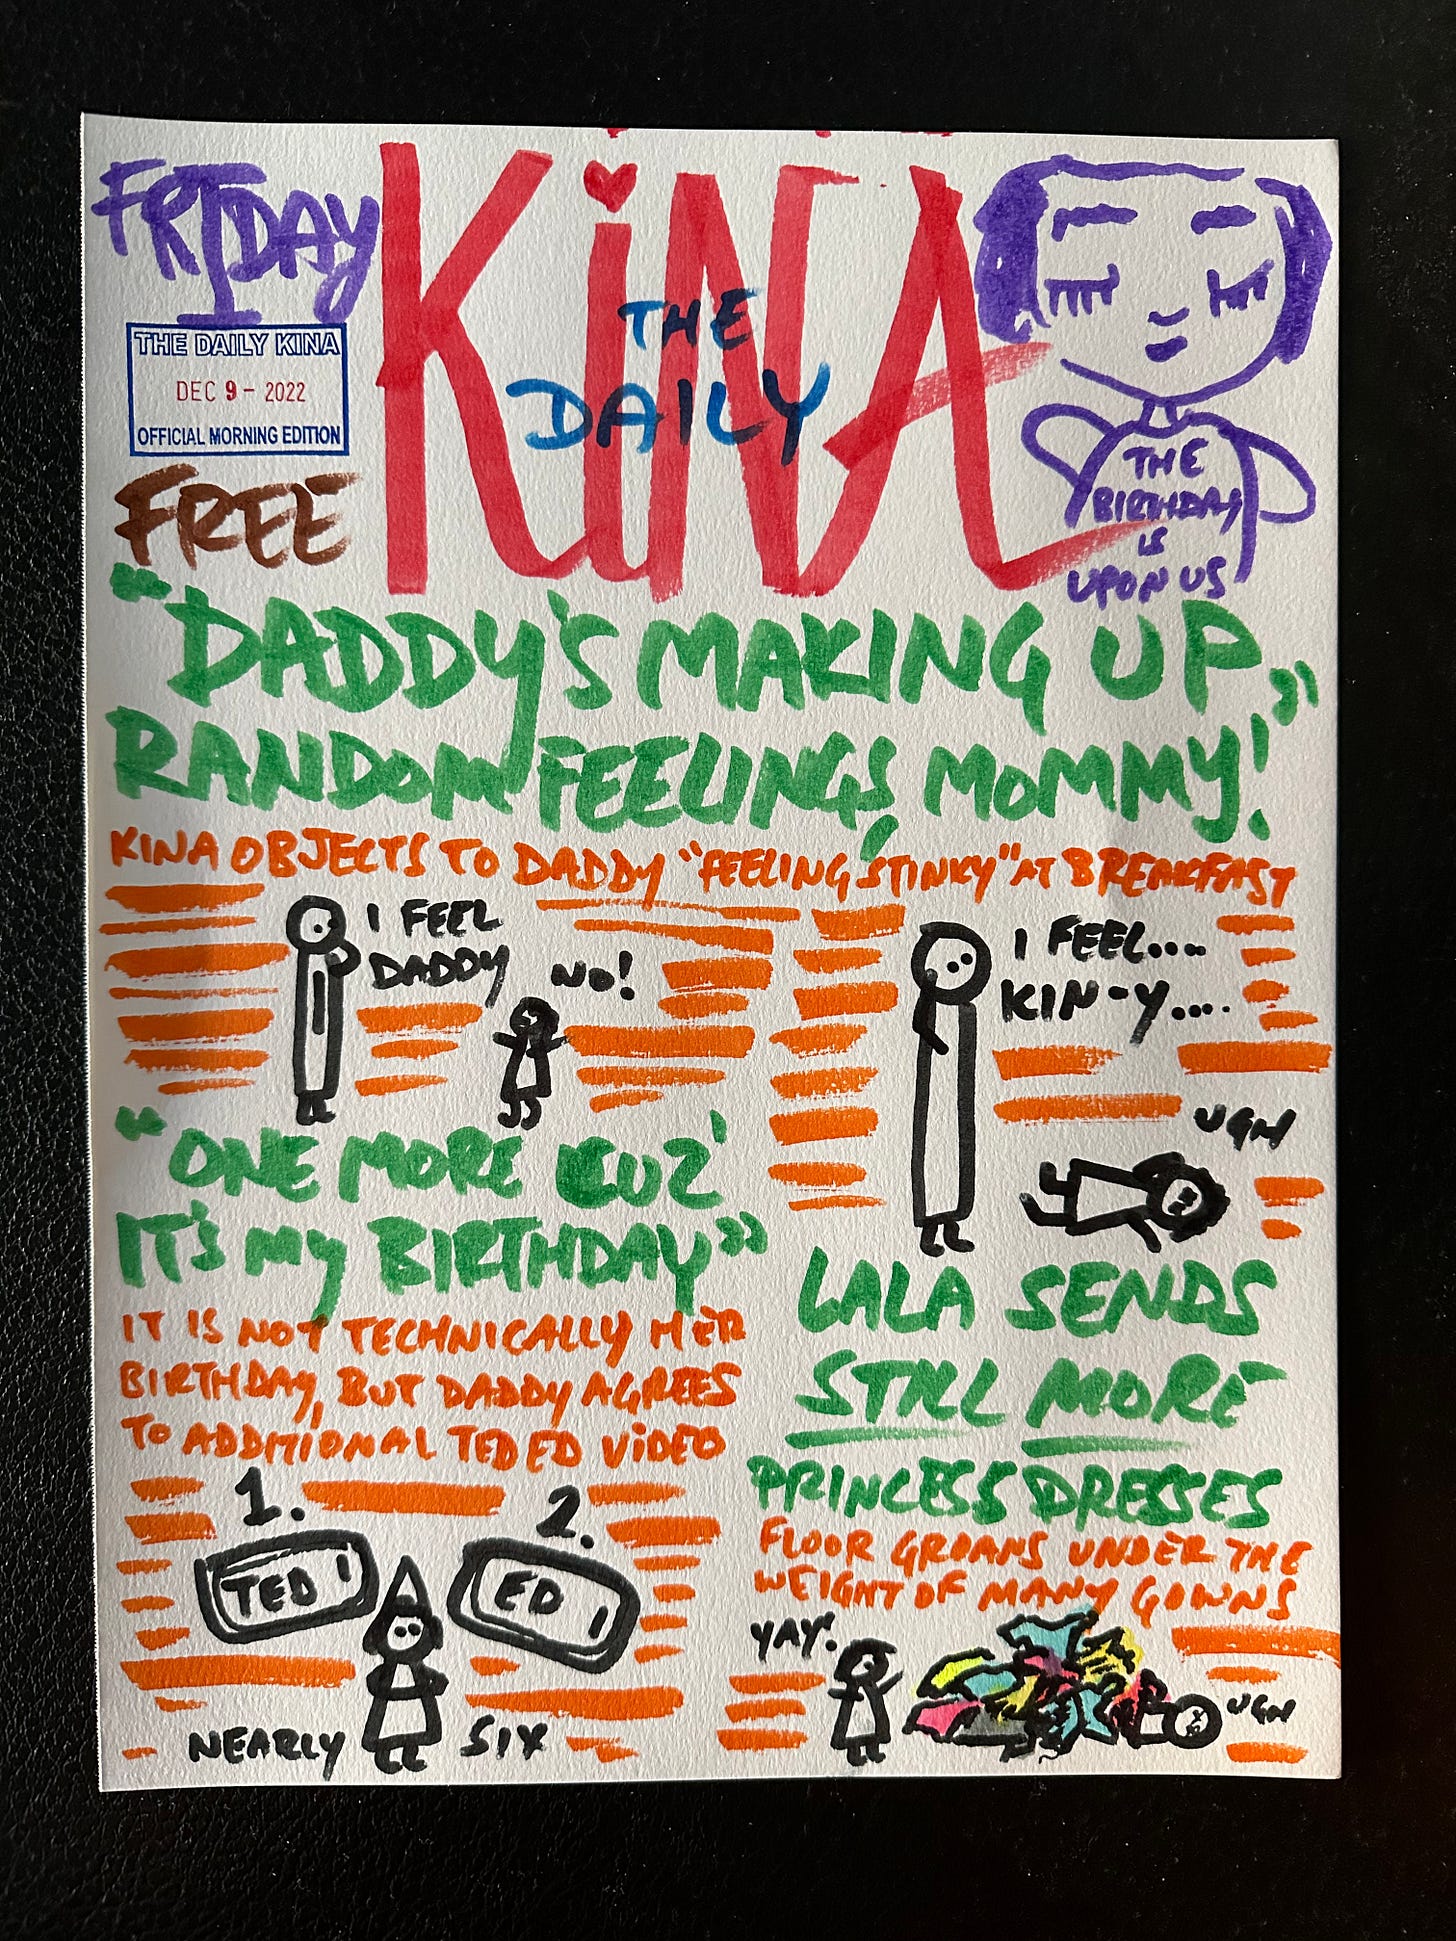 FRIDAY
THE DAILY KINA
DEC 9 - 2022
OFFICIAL MORNING EDITION
FREE
KiNA
THE
DAILY
THE
BIRTHDAY
IS
UPON US
"DADDY'S MAKING UP
RANDOM FEELINGS, MOMMY!"
KINA OBJECTS TO DADDY "FEELING STINKY" AT BREAKFAST
I FEEL
DADDY
NO!
I FEEL....
KIN-Y....
UGH
"ONE MORE CUZ
IT'S MY BIRTHDAY"
IT IS NOT TECHNICALLY HER
BIRTHDAY, BUT DADDY AGREES
TO ADDITIONAL TED ED VIDEO
1.
2.
TED
ED
NEARLY
SIX
LALA SENDS
STILL MORE
PRINCESS DRESSES
FLOOR GROANS UNDER THE
WEIGHT OF MANY GOWNS
YAY.
UGH